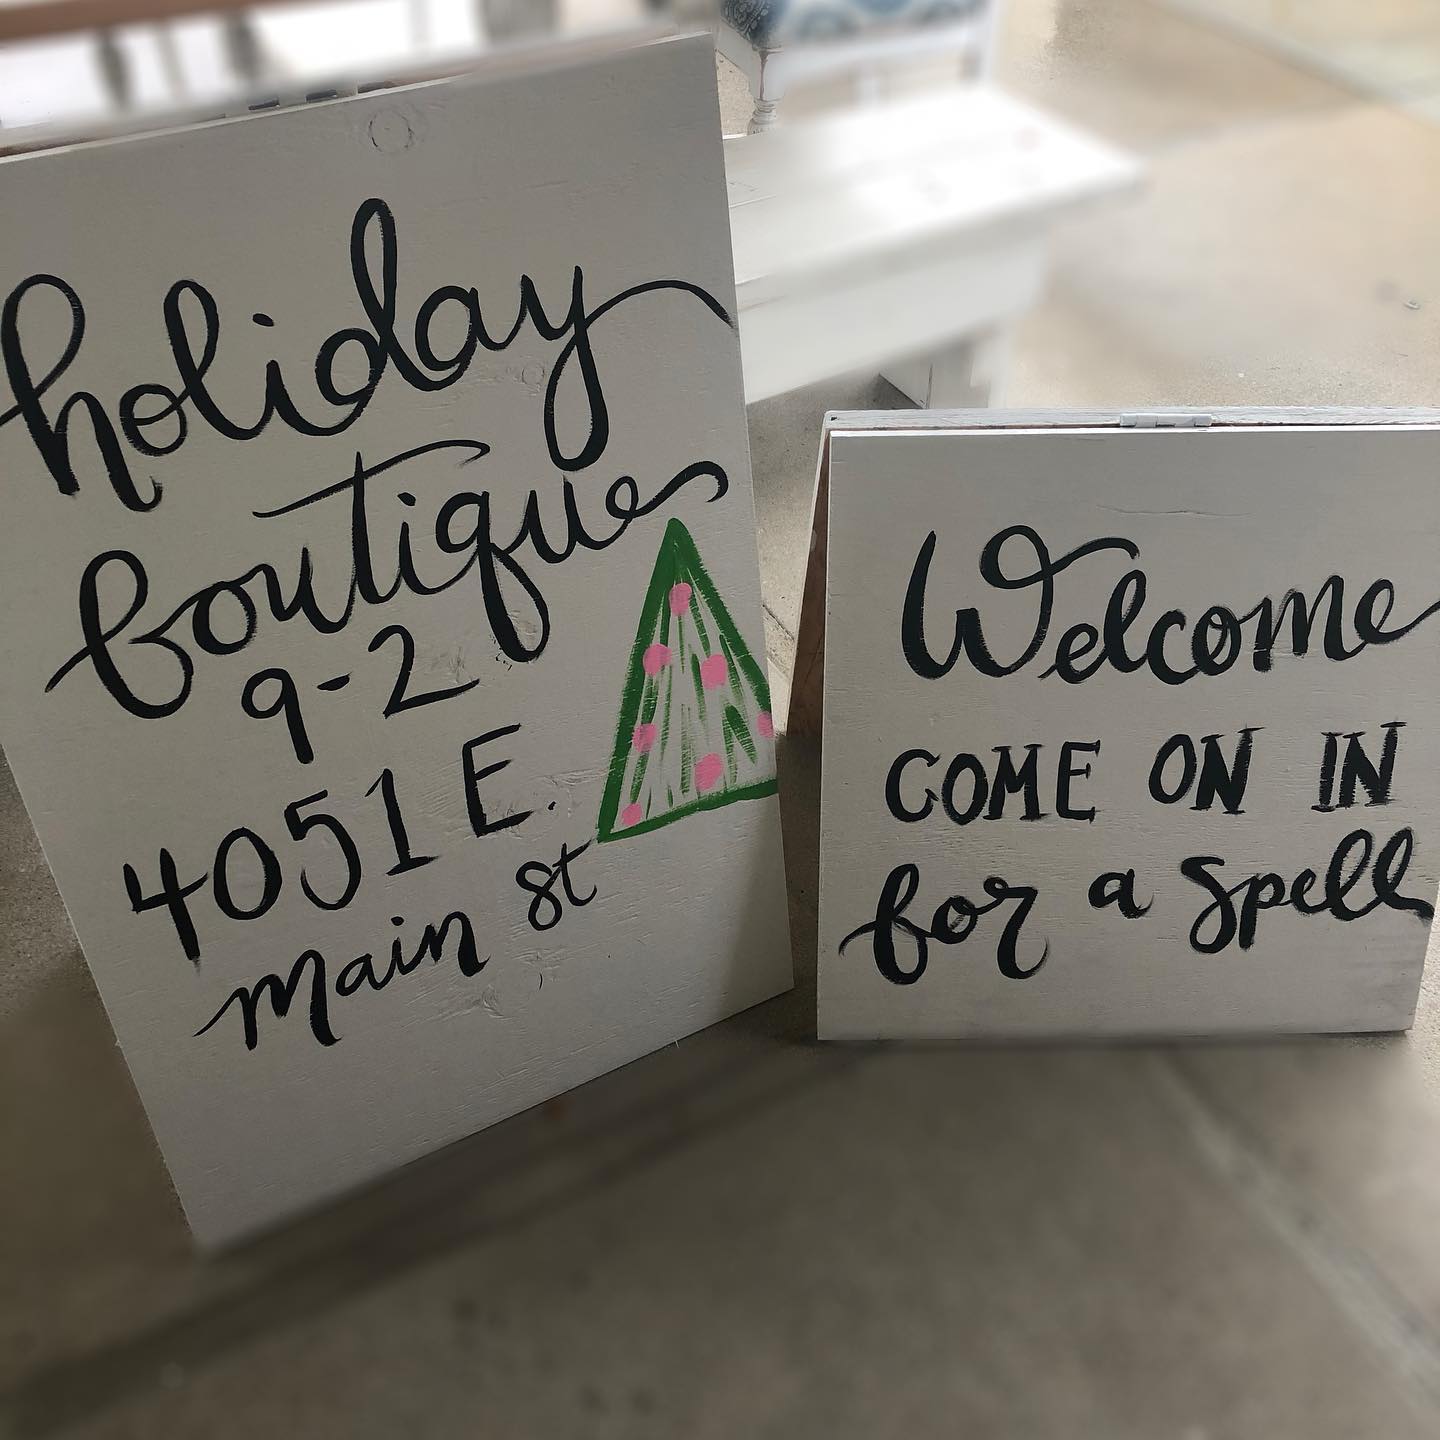 holiday
boutique
9-2
4051 E.
Main St
Welcome
COME ON IN
for a spell